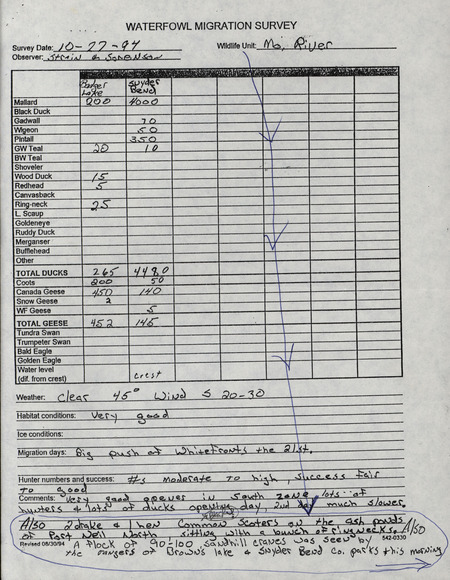 WATERFOWL MIGRATION SURVEY
Survey Date: 10-27-94 Wildlife Unit: Mo. River
Observer: & Sorenson
Lake Snyder Bend
Mallard 200 4000
Black Duck
Gadwall 70
Wigeon 50
Pintail 350
GW Teal 20 10
BW Teal
Shoveler
Wood Duck 15
Redhead 5
Canvasback
Ring-neck 25
L. Scaup
Goldeneye
Ruddy Duck
Merganser
Bufflehead
Other
TOTAL DUCKS 265 4480
Coots 200 50
Canada Geese 450 140
Snow Geese 2
WF Geese 5
TOTAL GEESE 452 145
Tundra Swan
Trumpeter Swan
Bald Eagle
Golden Eagle
Water level
(dif. from crest) crest
Weather: Clear 45° Wind S 20-30
Habitat conditions: Very good
Ice conditions:
Migration days: Big push of Whitefronts the 21st.
Hunter numbers and success: #s moderate to high, success fair
to good
Comments: Very good opener in South zone lots of
hunters & lots of ducks opening day, 2nd day much slower.
Also 2 drake & 1 hen Common Scoters on the ash ponds
of Port Neil North sitting with a bunch of ringnecks. Also
Revised 08/30/94 542-0330
A flock of 90-100 sandhill cranes was seen by
the rangers at Brown's lake & Snyder Bend Co. parks this morning